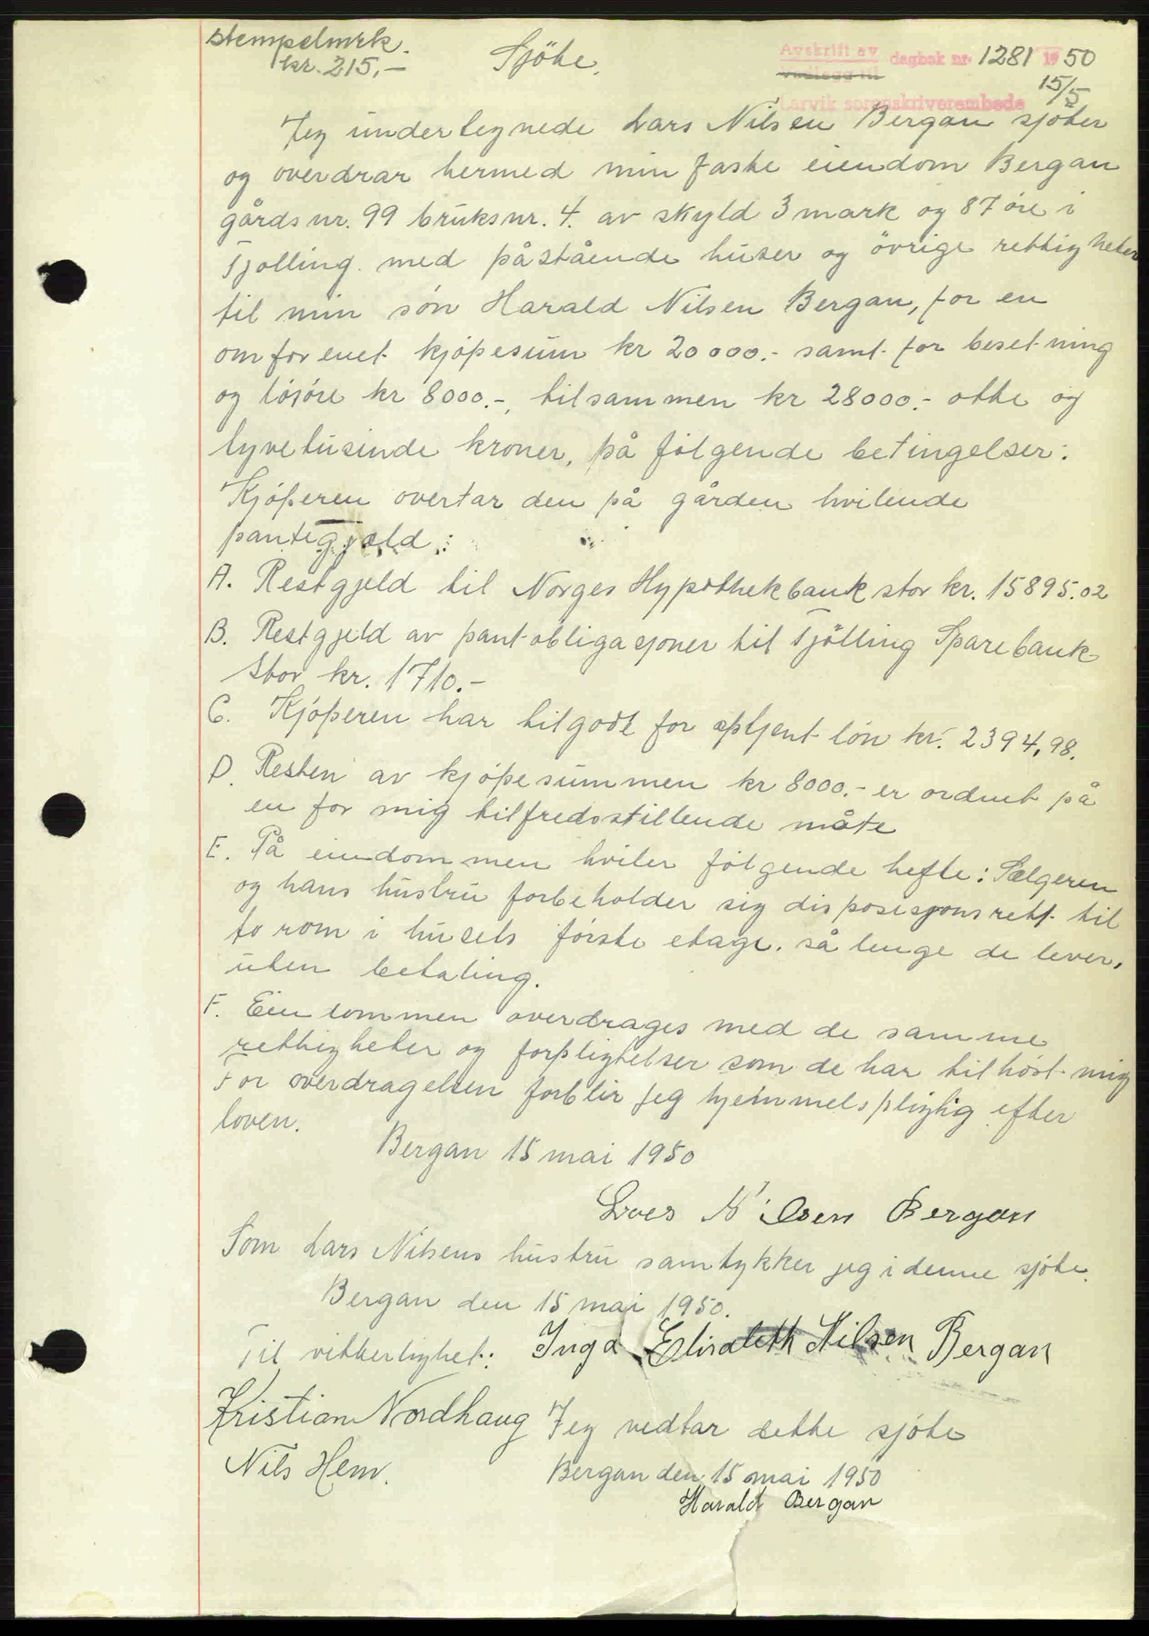 Stempelmrk.
kr. 215,-
Sjöte.
Avskrift av dagbok nr. 1281 1950
15/5
Larvik sorenskriverembede
Jeg undertegnede Lars Nilsen Bergan sjöter
og overdrar hermed min faste eiendom Bergan
gårdsnr. 99 bruksnr. 4. av skyld 3 mark og 87 öre i
Tjölling. med påstående huser og övrige rettigheter
til min sön Harald Nilsen Bergan, for en
omforenet kjöpesum kr 20 000.- samt for besetning
og lösöre kr 8000.-, tilsammen kr 28000.- otte og
tyvetusinde kroner, på fölgende betingelser:
Kjöperen overtar den på gården hvilende
pantegjæld:
A. Restgjeld til Norges Hypothekbank stor kr. 15895.02
B. Restgjeld av pantobligasjoner til Tjölling Sparebank
stor kr. 1710.-
C. Kjöperen har tilgodt for optjent lön kr. 2394,98.
D. Resten av kjöpesummen kr 8000.- er ordnet på
en for mig tilfredsstillende måte
E. På eiendommen hviler fölgende hefte: Sælgeren
og hans hustru forbeholder sig disposisjonsrett til
to rom i husets förste etage. så lenge de lever,
uten betaling.
F. Eiendommen overdrages med de samme
rettigheter og forpligtelser som de har tilhöst mig
For overdragelsen forblir jeg hjemmelspligtig efter
loven.
Bergan 15 mai 1950
Lars Nilsen Bergan
Som Lars Nilsens hustru samtykker jeg i denne sjöte.
Bergan den 15 mai 1950.
Til vitterlighet: Inga Elisabeth Nilsen Bergan
Kristian Nordhaug Jeg vedtar dette sjöte
Nils Hem. Bergan den 15 mai 1950
Harald Bergan